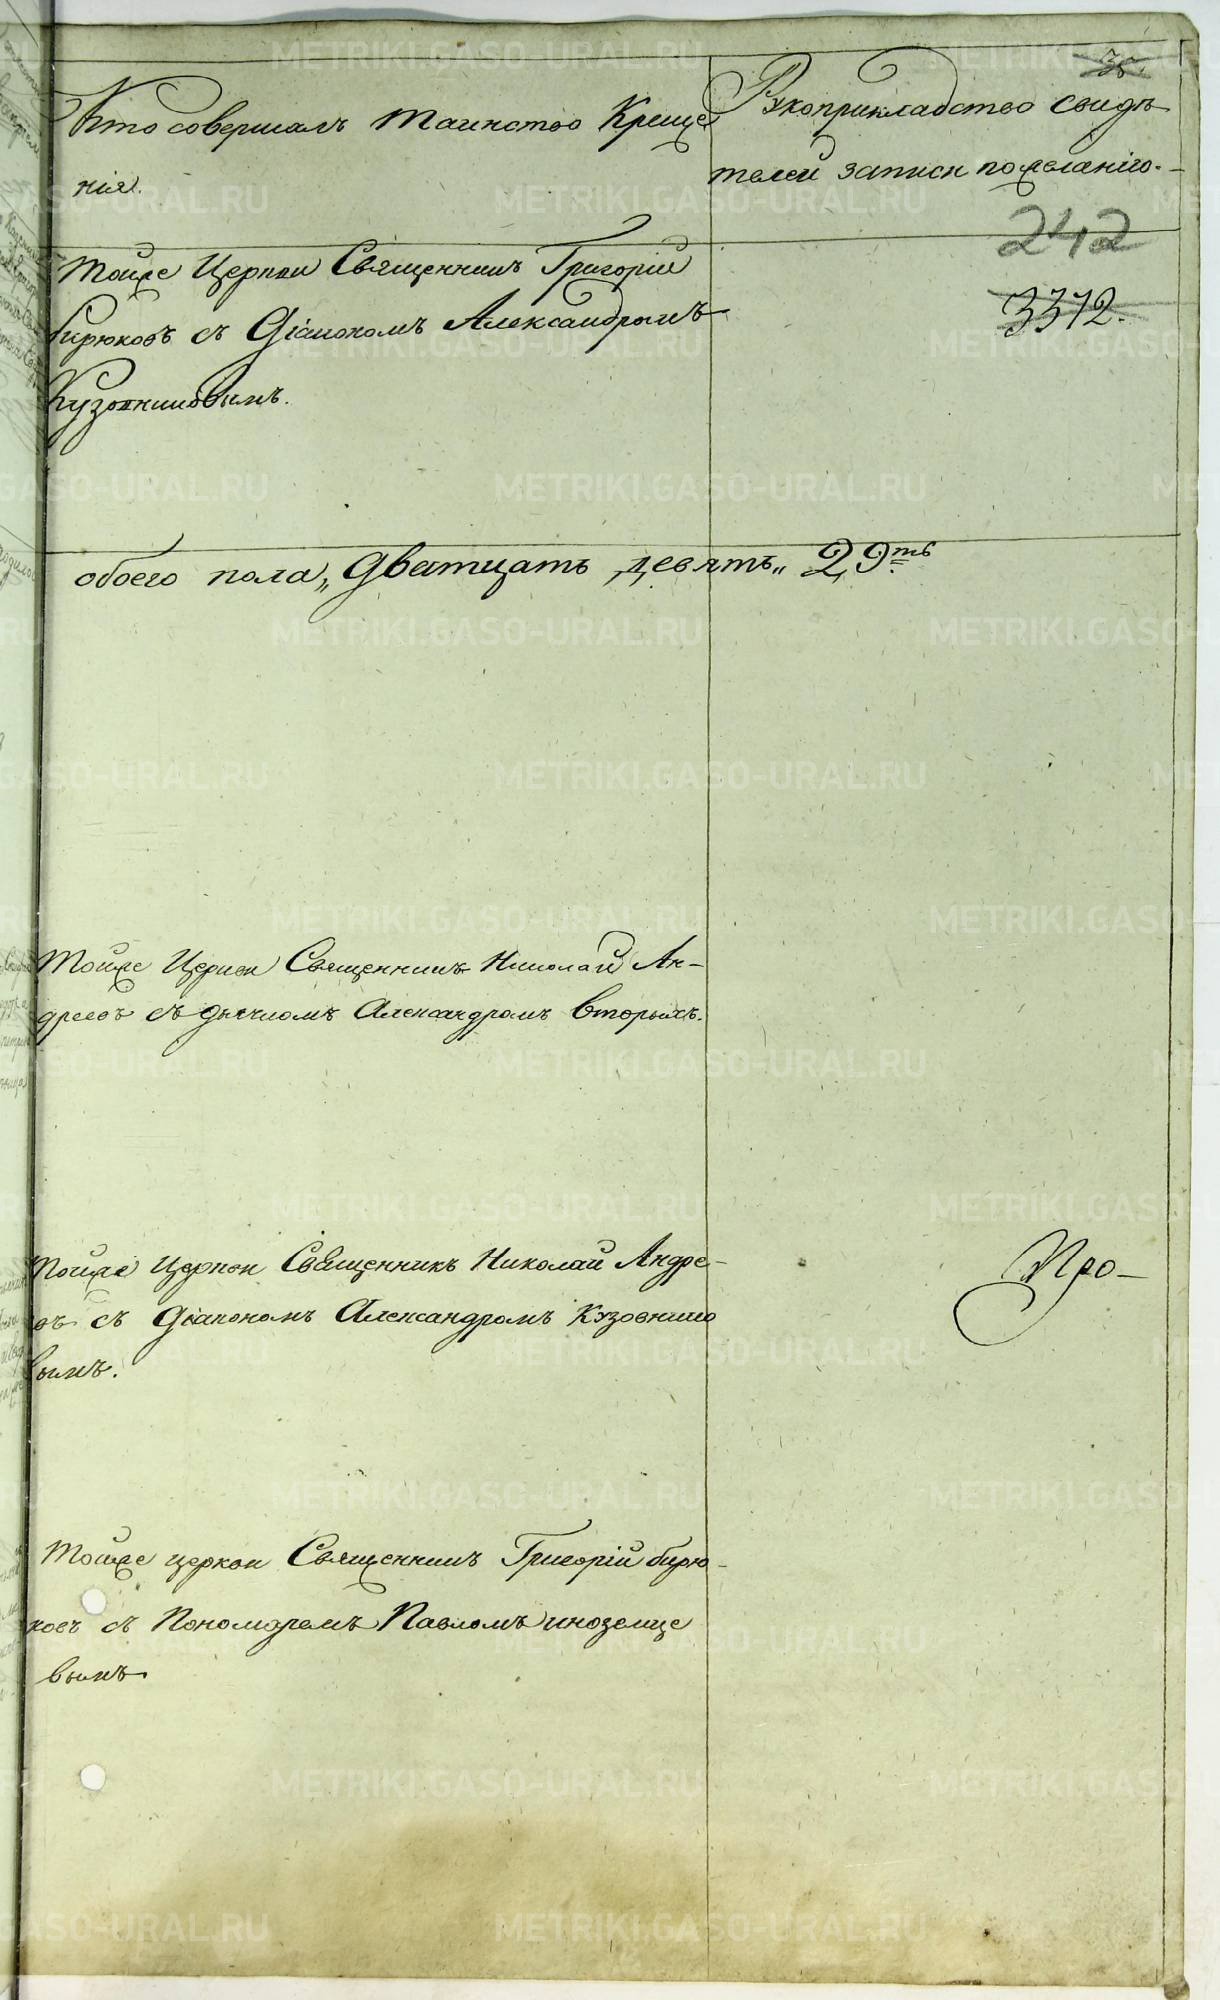 35.
Кто совершалъ таинство Креще
нія.
Рукоприкладство свидѣ
телей записи по желанію.-
242
3312.
Тойже Церкви Священникъ Григорій
Бирюковъ съ Діакономъ Александромъ
Кузовниковымъ.
обоего пола „Дватцать девять„ 29ть
Тойже Церкви Священникъ Николай Ан-
дреевъ съ дьячкомъ Александромъ Вторыхъ.
Тойже Церкви Священникъ Николай Андре-
въ съ Діакономъ Александромъ Кузовнико
вымъ.
Про-
Тойже церкви Священникъ Григорій Бирю-
ковъ съ Пономаремъ Павломъ иноземце
вымъ